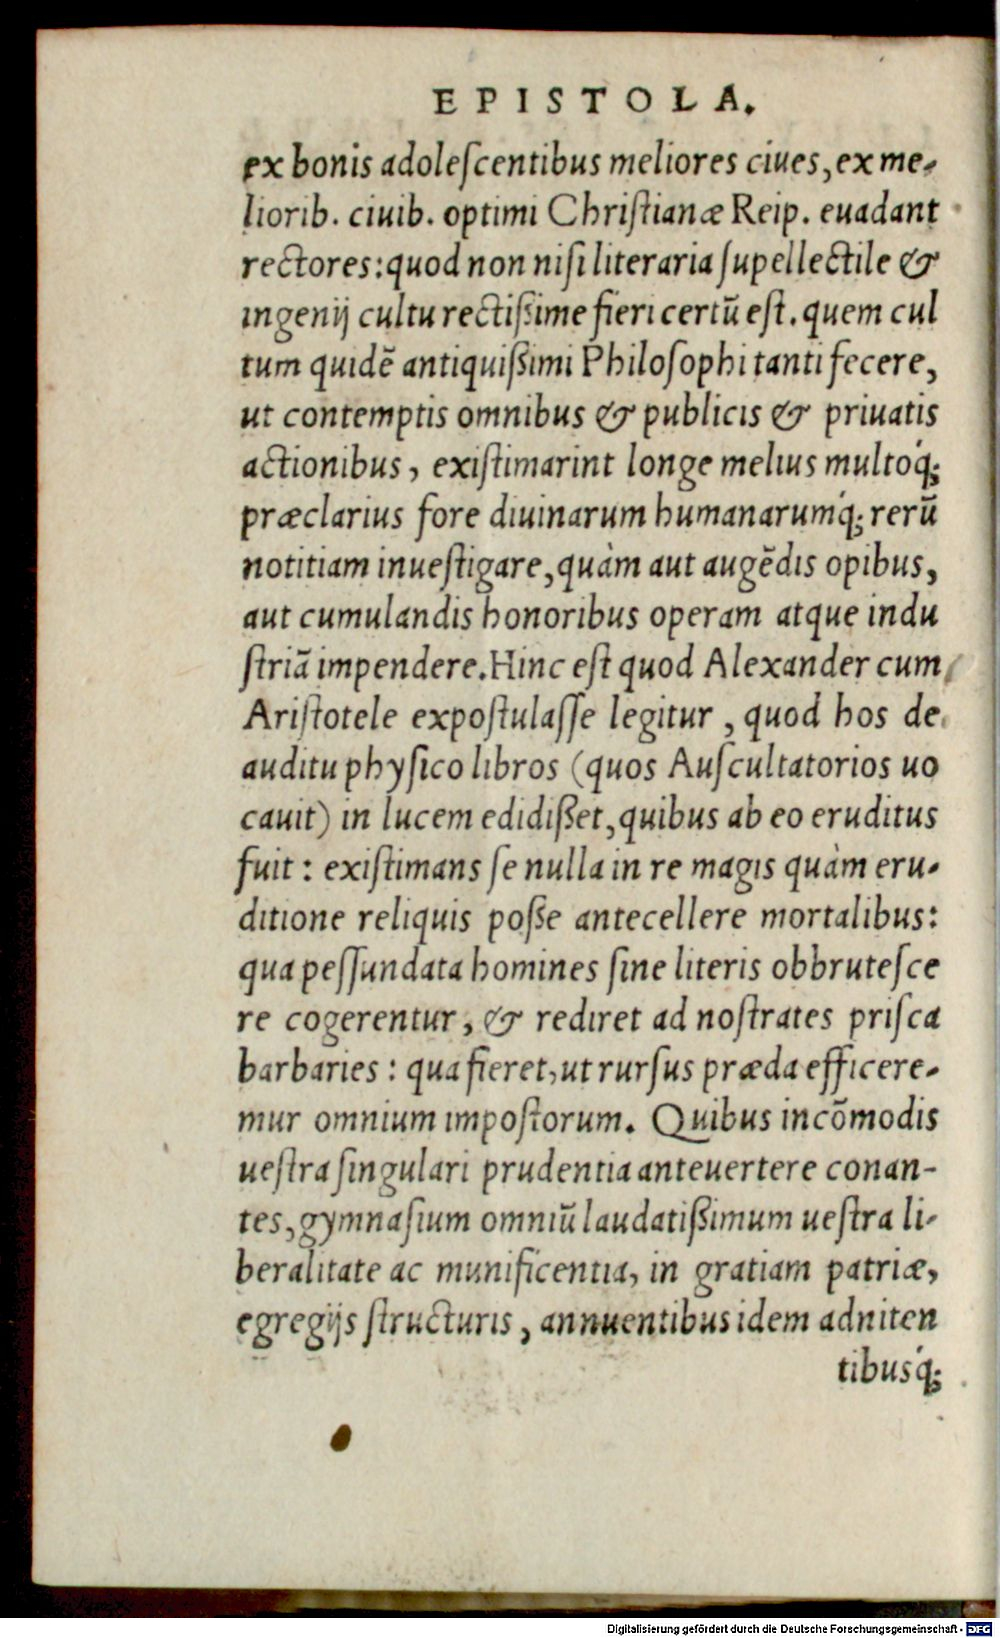 EPISTOLA.
ex bonis adoleſcentibus meliores ciues, ex me-
liorib. ciuib. optimi Chriſtianæ Reip. euadant
rectores: quod non niſi literaria ſupellectile &
ingenij cultu rectiſsime fieri certũ eſt. quem cul
tum quidẽ antiquiſsimi Philoſophi tanti fecere,
ut contemptis omnibus & publicis & priuatis
actionibus, exiſtimarint longe melius multoq́;
præclarius fore diuinarum humanarumq́; rerũ
notitiam inueſtigare, quàm aut augẽdis opibus,
aut cumulandis honoribus operam atque indu
ſtriã impendere. Hinc eſt quod Alexander cum
Ariſtotele expoſtulaſſe legitur, quod hos de
auditu phyſico libros (quos Auſcultatorios uo
cauit) in lucem edidiſset, quibus ab eo eruditus
fuit: exiſtimans ſe nulla in re magis quàm eru-
ditione reliquis poſse antecellere mortalibus:
qua peſſundata homines ſine literis obbruteſce
re cogerentur, & rediret ad noſtrates priſca
barbaries: qua fieret, ut rurſus præda efficere-
mur omnium impoſtorum. Quibus incõmodis
ueſtra ſingulari prudentia anteuertere conan-
tes, gymnaſium omniũ laudatiſsimum ueſtra li-
beralitate ac munificentia, in gratiam patriæ,
egregijs ſtructuris, annuentibus idem adniten
tibusq́;
Digitalisierung gefördert durch die Deutsche Forschungsgemeinschaft - DFG